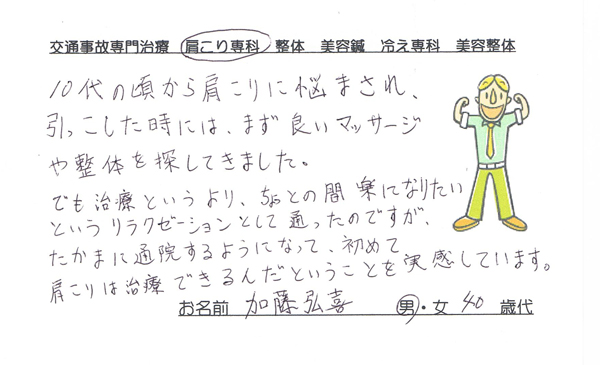 交通事故専門治療 肩こり専科 整体 美容鍼 冷え専科 美容整体
10代の頃から肩こりに悩まされ、
引っこした時には、まず良いマッサージ
や整体を探してきました。
でも治療というより、ちょっとの間楽になりたい
というリラクゼーションとして通ったのですが、
たかまに通院するようになって、初めて
肩こりは治療できるんだということを実感しています。
お名前 加藤弘喜 男・女 40 歳代